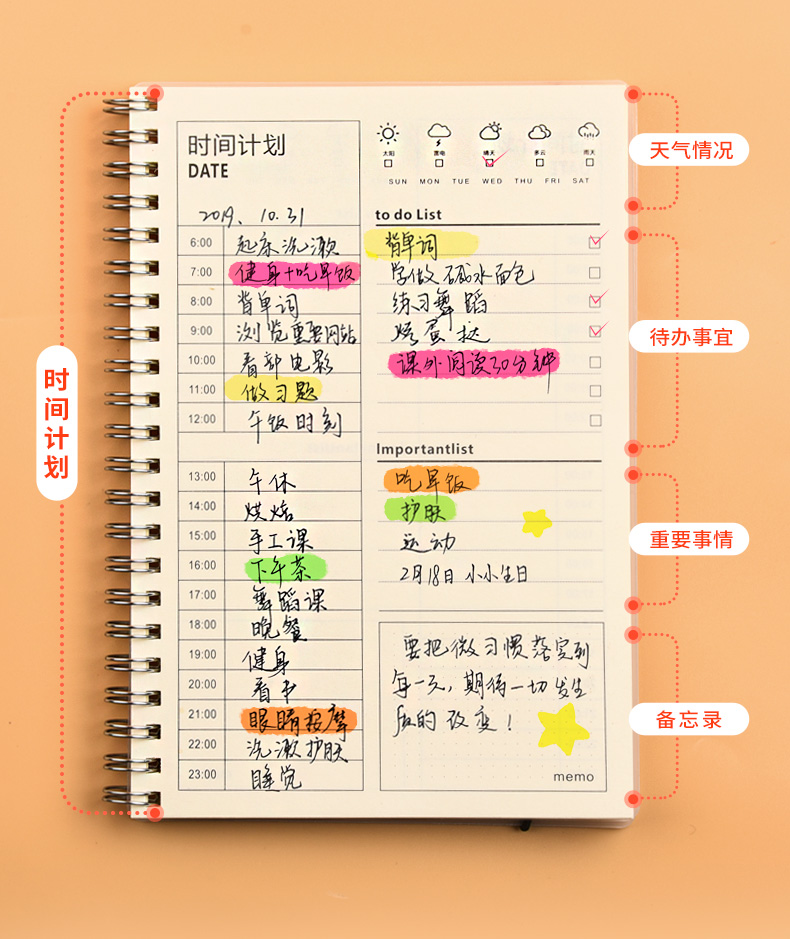 时间计划
DATE
2019. 10.31
6:00 起床洗漱
7:00 健身+吃早饭
8:00 背单词
9:00 浏览重要网站
10:00 看部电影
11:00 做习题
12:00 午饭时刻
13:00 午休
14:00 烘焙
15:00 手工课
16:00 下午茶
17:00 舞蹈课
18:00 晚餐
19:00 健身
20:00 看书
21:00 眼睛按摩
22:00 洗漱护肤
23:00 睡觉
太阳 雷电 晴天 多云 雨天
SUN MON TUE WED THU FRI SAT
to do List
背单词
学做碱水面包
练习舞蹈
烤蛋挞
课外阅读30分钟
Importantlist
吃早饭
护肤
运动
2月18日 小小生日
要把做习惯落实到
每一天，期待一切发生
的改变！
memo
时间计划
天气情况
待办事宜
重要事情
备忘录